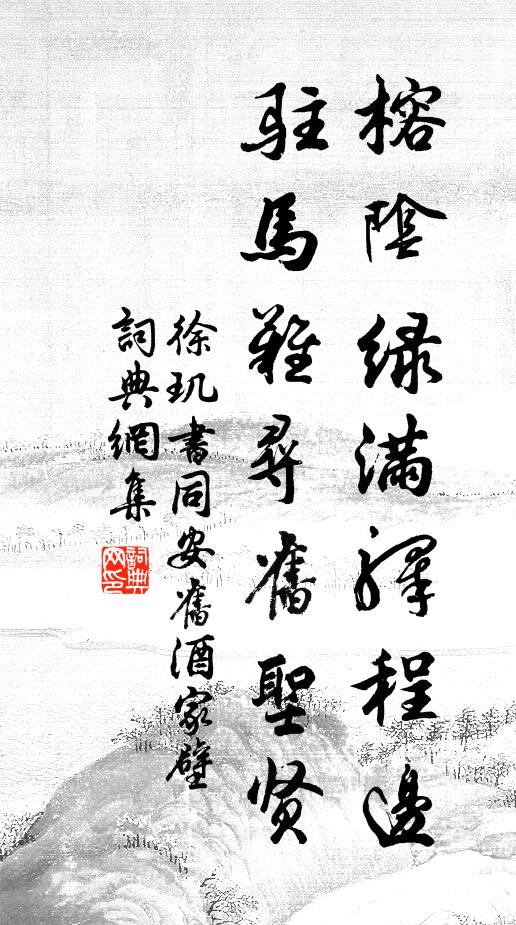 榕陰緑滿驛程邊
駐馬難尋舊聖賢
徐玑書同安舊酒家壁
詞典網集
詞典網印